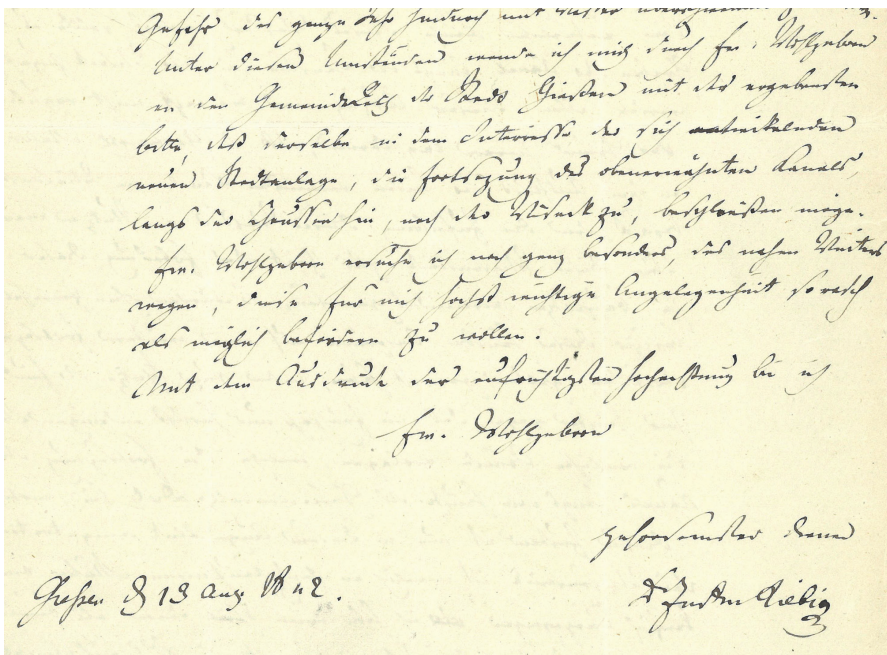 Gefahr das ganze Jahr hindurch mit Wasser
Unter diesen Umständen wende ich mich durch Ew. Wohlgeborn
an den Gemeinderath der Stadt Gießen mit der ergebensten
bitte, daß derselbe in dem Interesse der sich entwickelnden
neuen Stadtanlage, die Fortsetzung des obenerwähnten Kanals,
längs der Chaussee hin, nach der Wieseck zu, beschließen möge.
Ew. Wohlgeborn ersuche ich noch ganz besonders, des nahen Winters
wegen, diese für mich höchst wichtige Angelegenheit so rasch
als möglich befördern zu wollen.
Mit dem Ausdrucke der aufrichtigsten Hochachtung bin ich
Ew. Wohlgeborn
gehorsamster Diener
Dr Justus Liebig
Giessen d 13 Aug 1842.